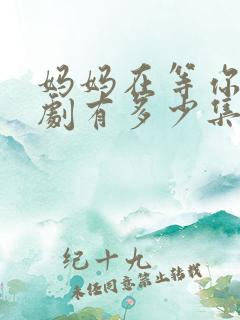 妈妈在等你
劇有多少集
纪十九
未经同意禁止转载